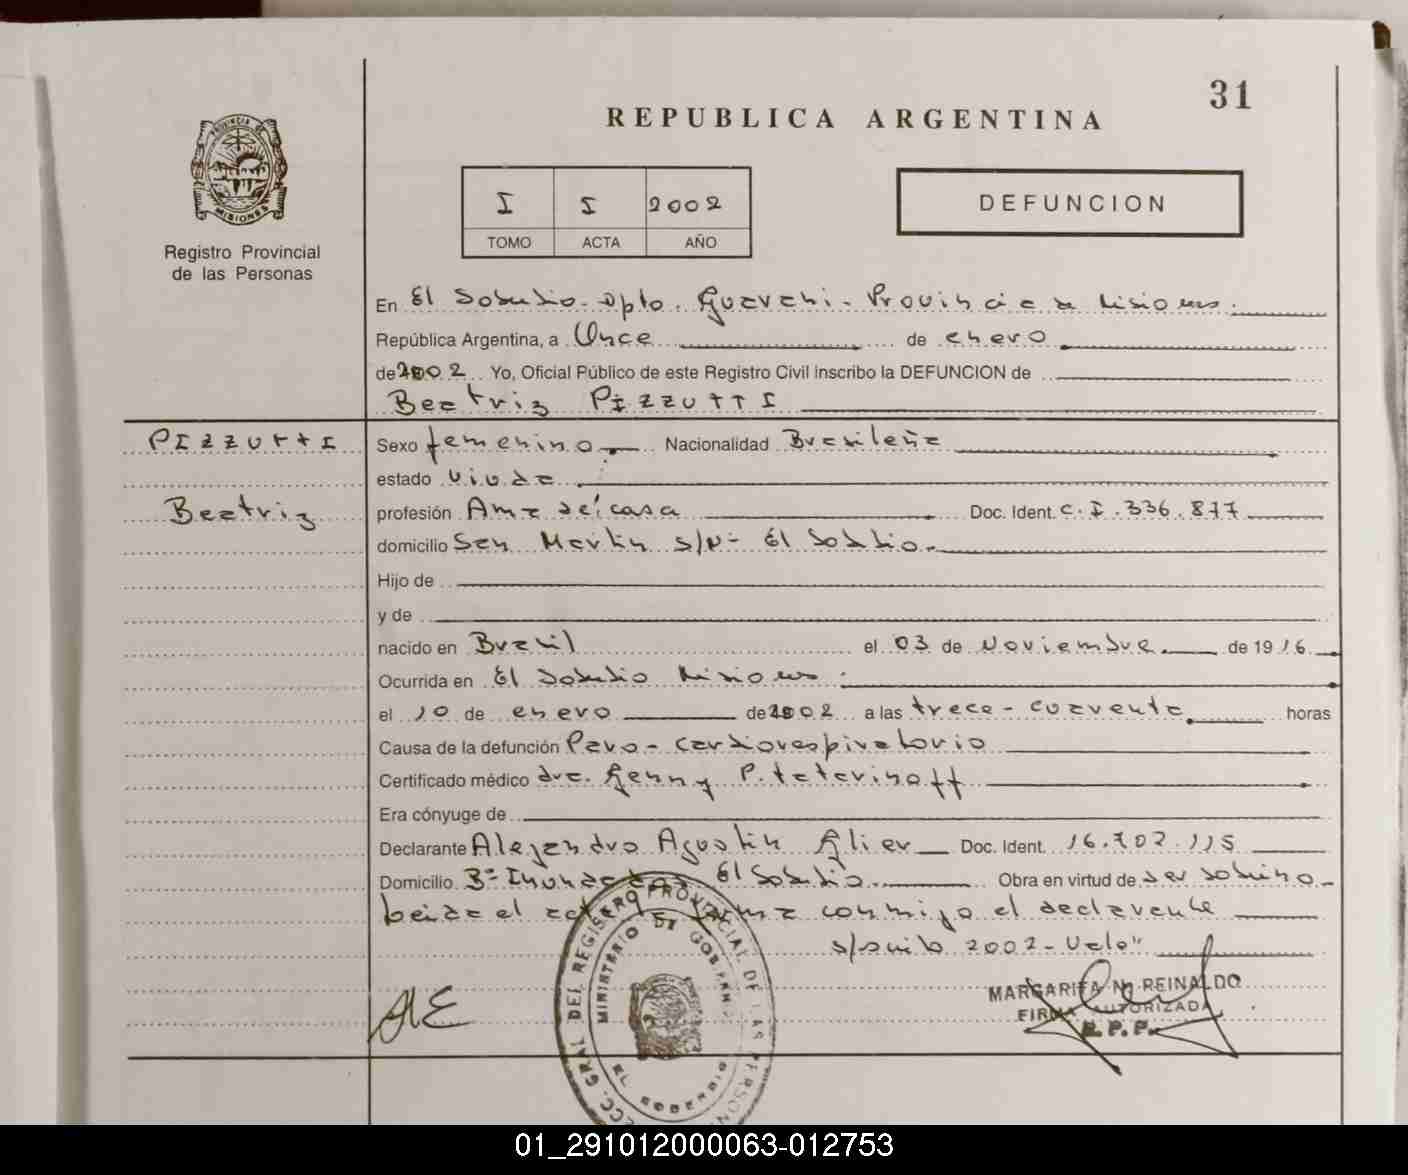 31
REPUBLICA ARGENTINA
PROVINCIA DE
MISIONES
Registro Provincial
de las Personas
I I 2002
TOMO ACTA AÑO
DEFUNCION
En El Soberbio - Dpto. Guarani - Provincia de Misiones.
República Argentina, a Once de enero
de 2002 Yo, Oficial Público de este Registro Civil inscribo la DEFUNCION de
Beatriz PIZZUTTI
PIZZUTTI
Beatriz
Sexo femenino Nacionalidad Brasileña
estado viuda
profesión Ama de casa Doc. Ident. C.I. 336.877
domicilio San Martin s/N- El Soberbio.
Hijo de
y de
nacido en Brasil el 03 de Noviembre. de 1916
Ocurrida en El Soberbio Misiones.
el 10 de enero de 2002 a las trece - cuarenta horas
Causa de la defunción Paro - cardiorespiratorio
Certificado médico dra. Genny P.
Era cónyuge de
Declarante Alejandro Agustin Glier Doc. Ident. 16.702.115
Domicilio Bº El Soberbio. Obra en virtud de ser sobrino -
leida el acta la firma conmigo el declarante
2002 - Vale"
MARGARITA N. REINALDO
FIRMA AUTORIZADA
R.P.P.
GRAL DEL REGISTRO PROVINCIAL DE LAS PERSON
MINISTERIO DE GOBIERNO
EL SOBERBIO
01_291012000063-012753